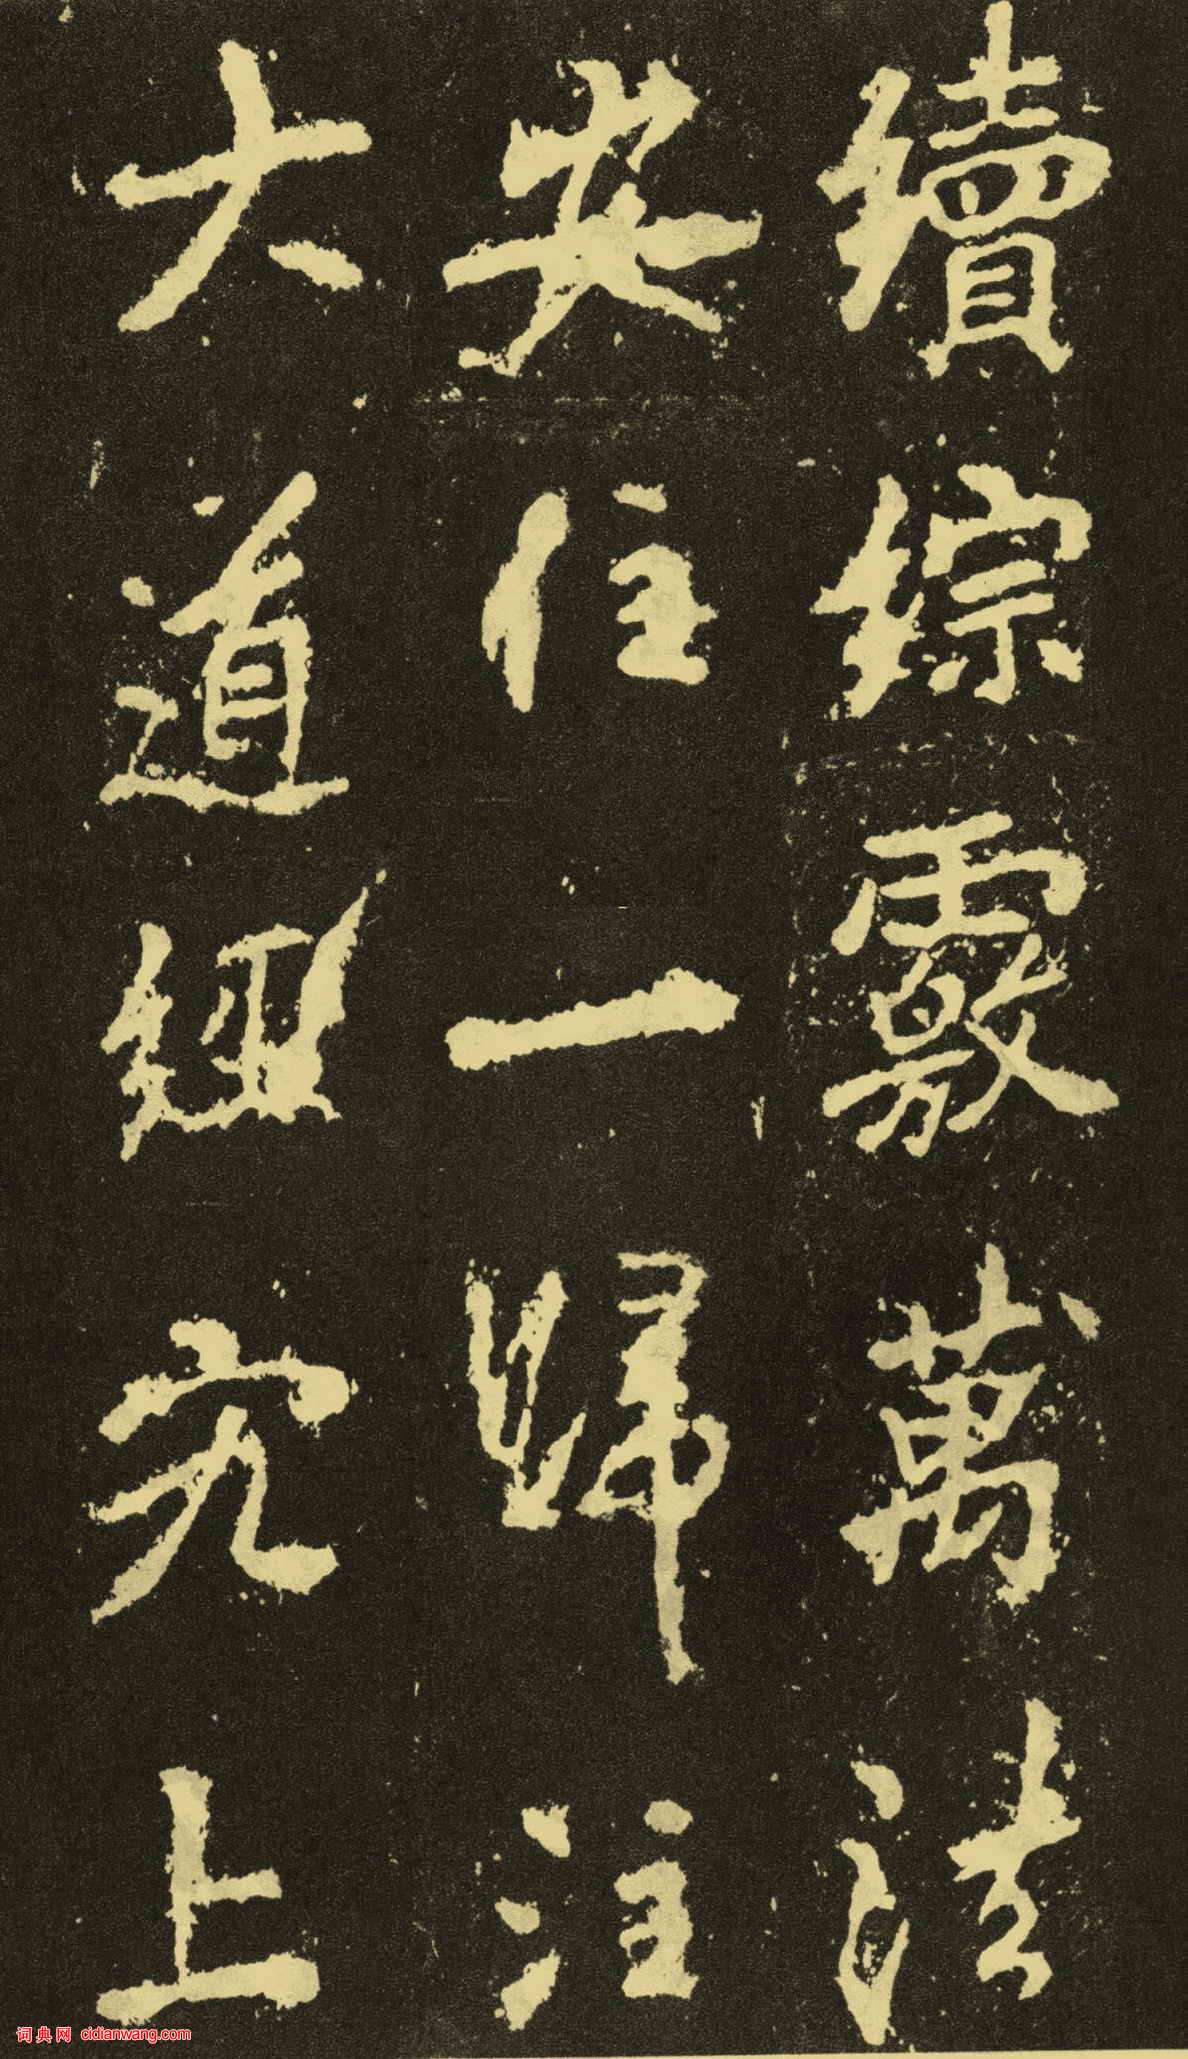 續綜覈萬法
安住一歸注
大道經究上
词典网 cidianwang.com